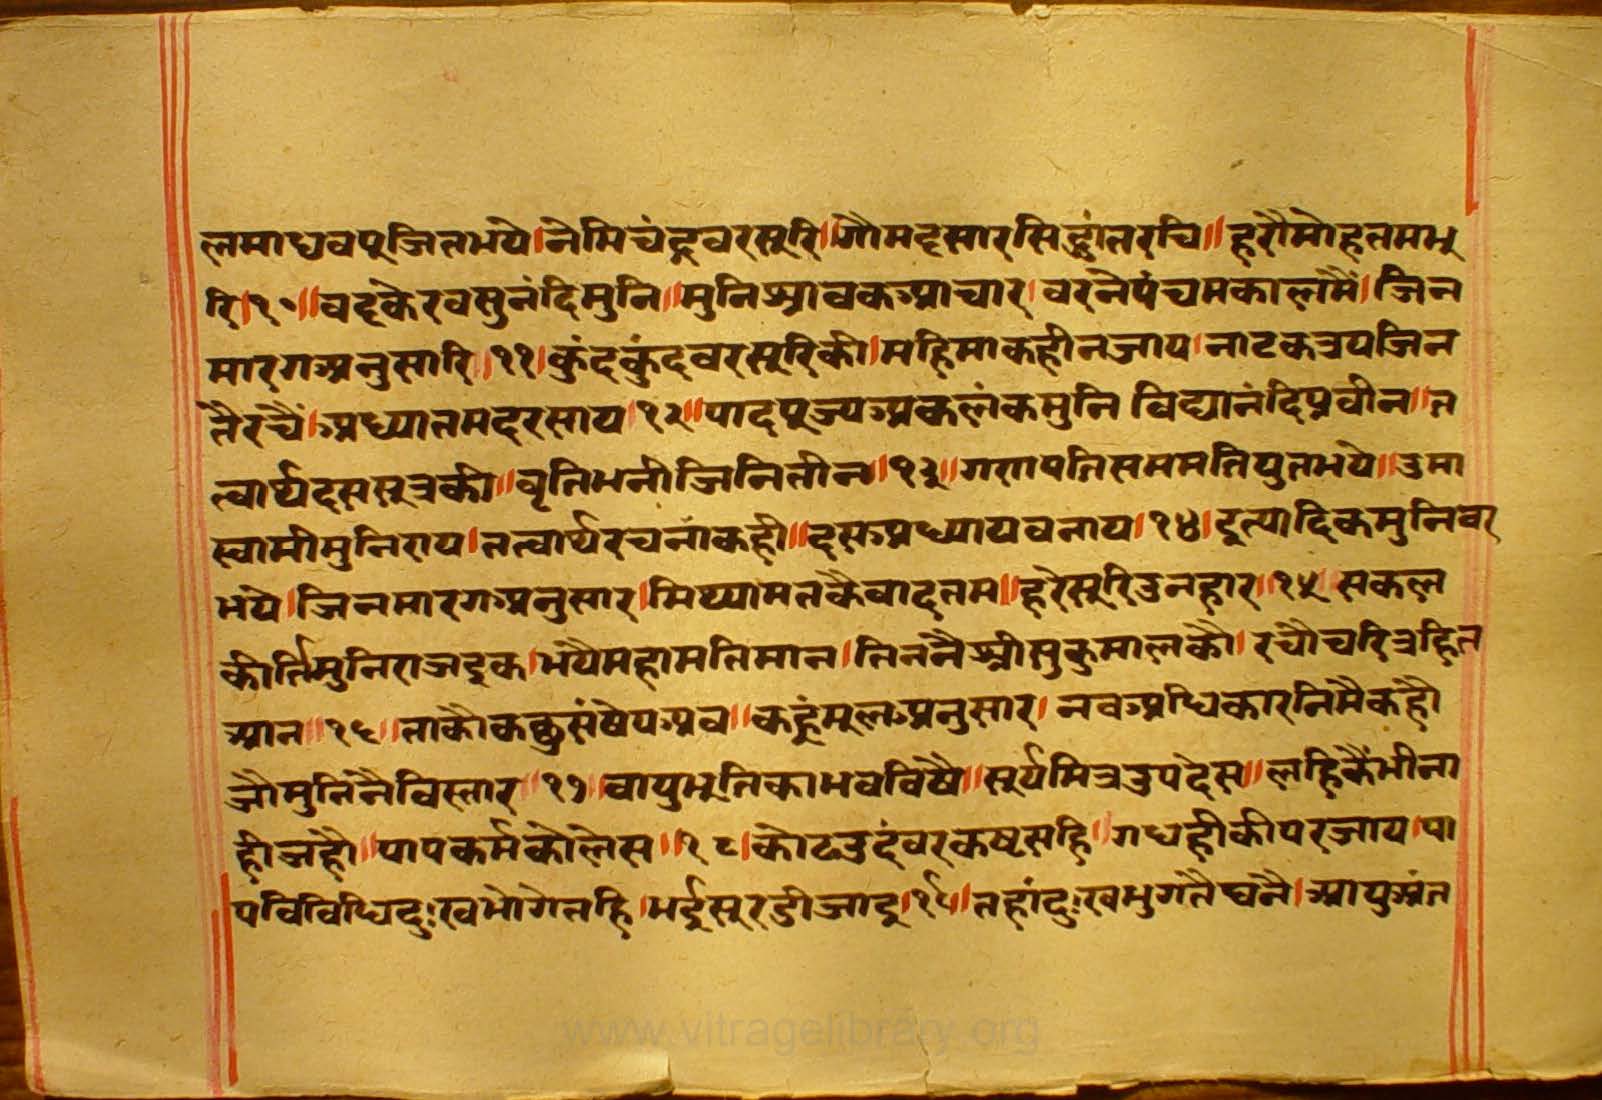 लमाधवपूजितभये।नेमिचंद्रवरसूरि॥गौमट्टसारसिद्धांतरचि॥हरौमोहतमभू
रि।१०॥वट्टकेरवसुनंदिमुनि॥मुनिश्रावकआचार।वरनेपंचमकालमैं।जिन
मारगअनुसारि।११।कुंदकुंदवरसूरिकी।महिमाकहीनजाय।नाटकत्रयजिन
तैरचैं।अध्यातमदरसाय।१२॥पादपूज्यअकलंकमुनि विद्यानंदिप्रवीन॥त
त्वार्थदससूत्रकी॥वृतिभनीजिनितीन॥१३॥गणपतिसममतियुतभये॥उमा
स्वामीमुनिराय।तत्वार्थरचनांकही॥दसअध्यायवनाय।१४।इत्यादिकमुनिवर
भये।जिनमारगअनुसार।मिथ्यामतकैवादतम॥हरेसूरिउनहार॥१५॥सकल
कीर्तिमुनिराजइक।भयैमहामतिमान।तिननैश्रीसुकुमालकौ।रचौचरित्रहित
आन॥१६॥ताकौकछुसंषेपअव॥कहूंमूलअनुसार।नवअधिकारनिमैकहौ
जौमुनिनैविस्तार॥१७॥वायुभूतिकाभवविषै॥सूर्यमित्रउपदेस॥लहिकैंभीना
हीजहौ॥पापकर्मकौलेस॥१८।कोढउदंवरकष्टसहि॥गधहीकीपरजाय।पा
पविविधिदुःखभोगेतहि।भईसूरडीजाइ।१९।तहांदुःखभुगतैघनै।आयुअंत